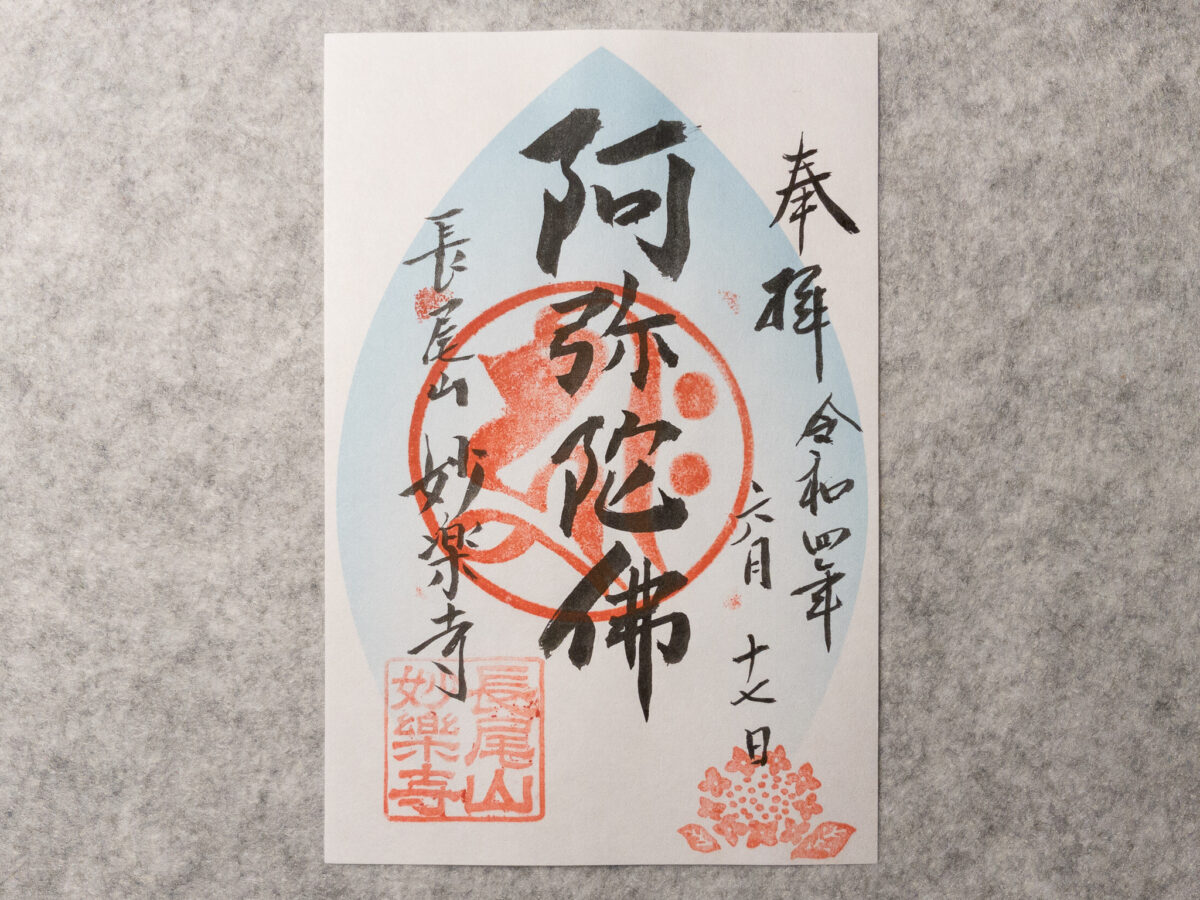 奉拝
令和四年
六月十七日
阿弥陀佛
長尾山
妙楽寺
長尾山
妙樂寺